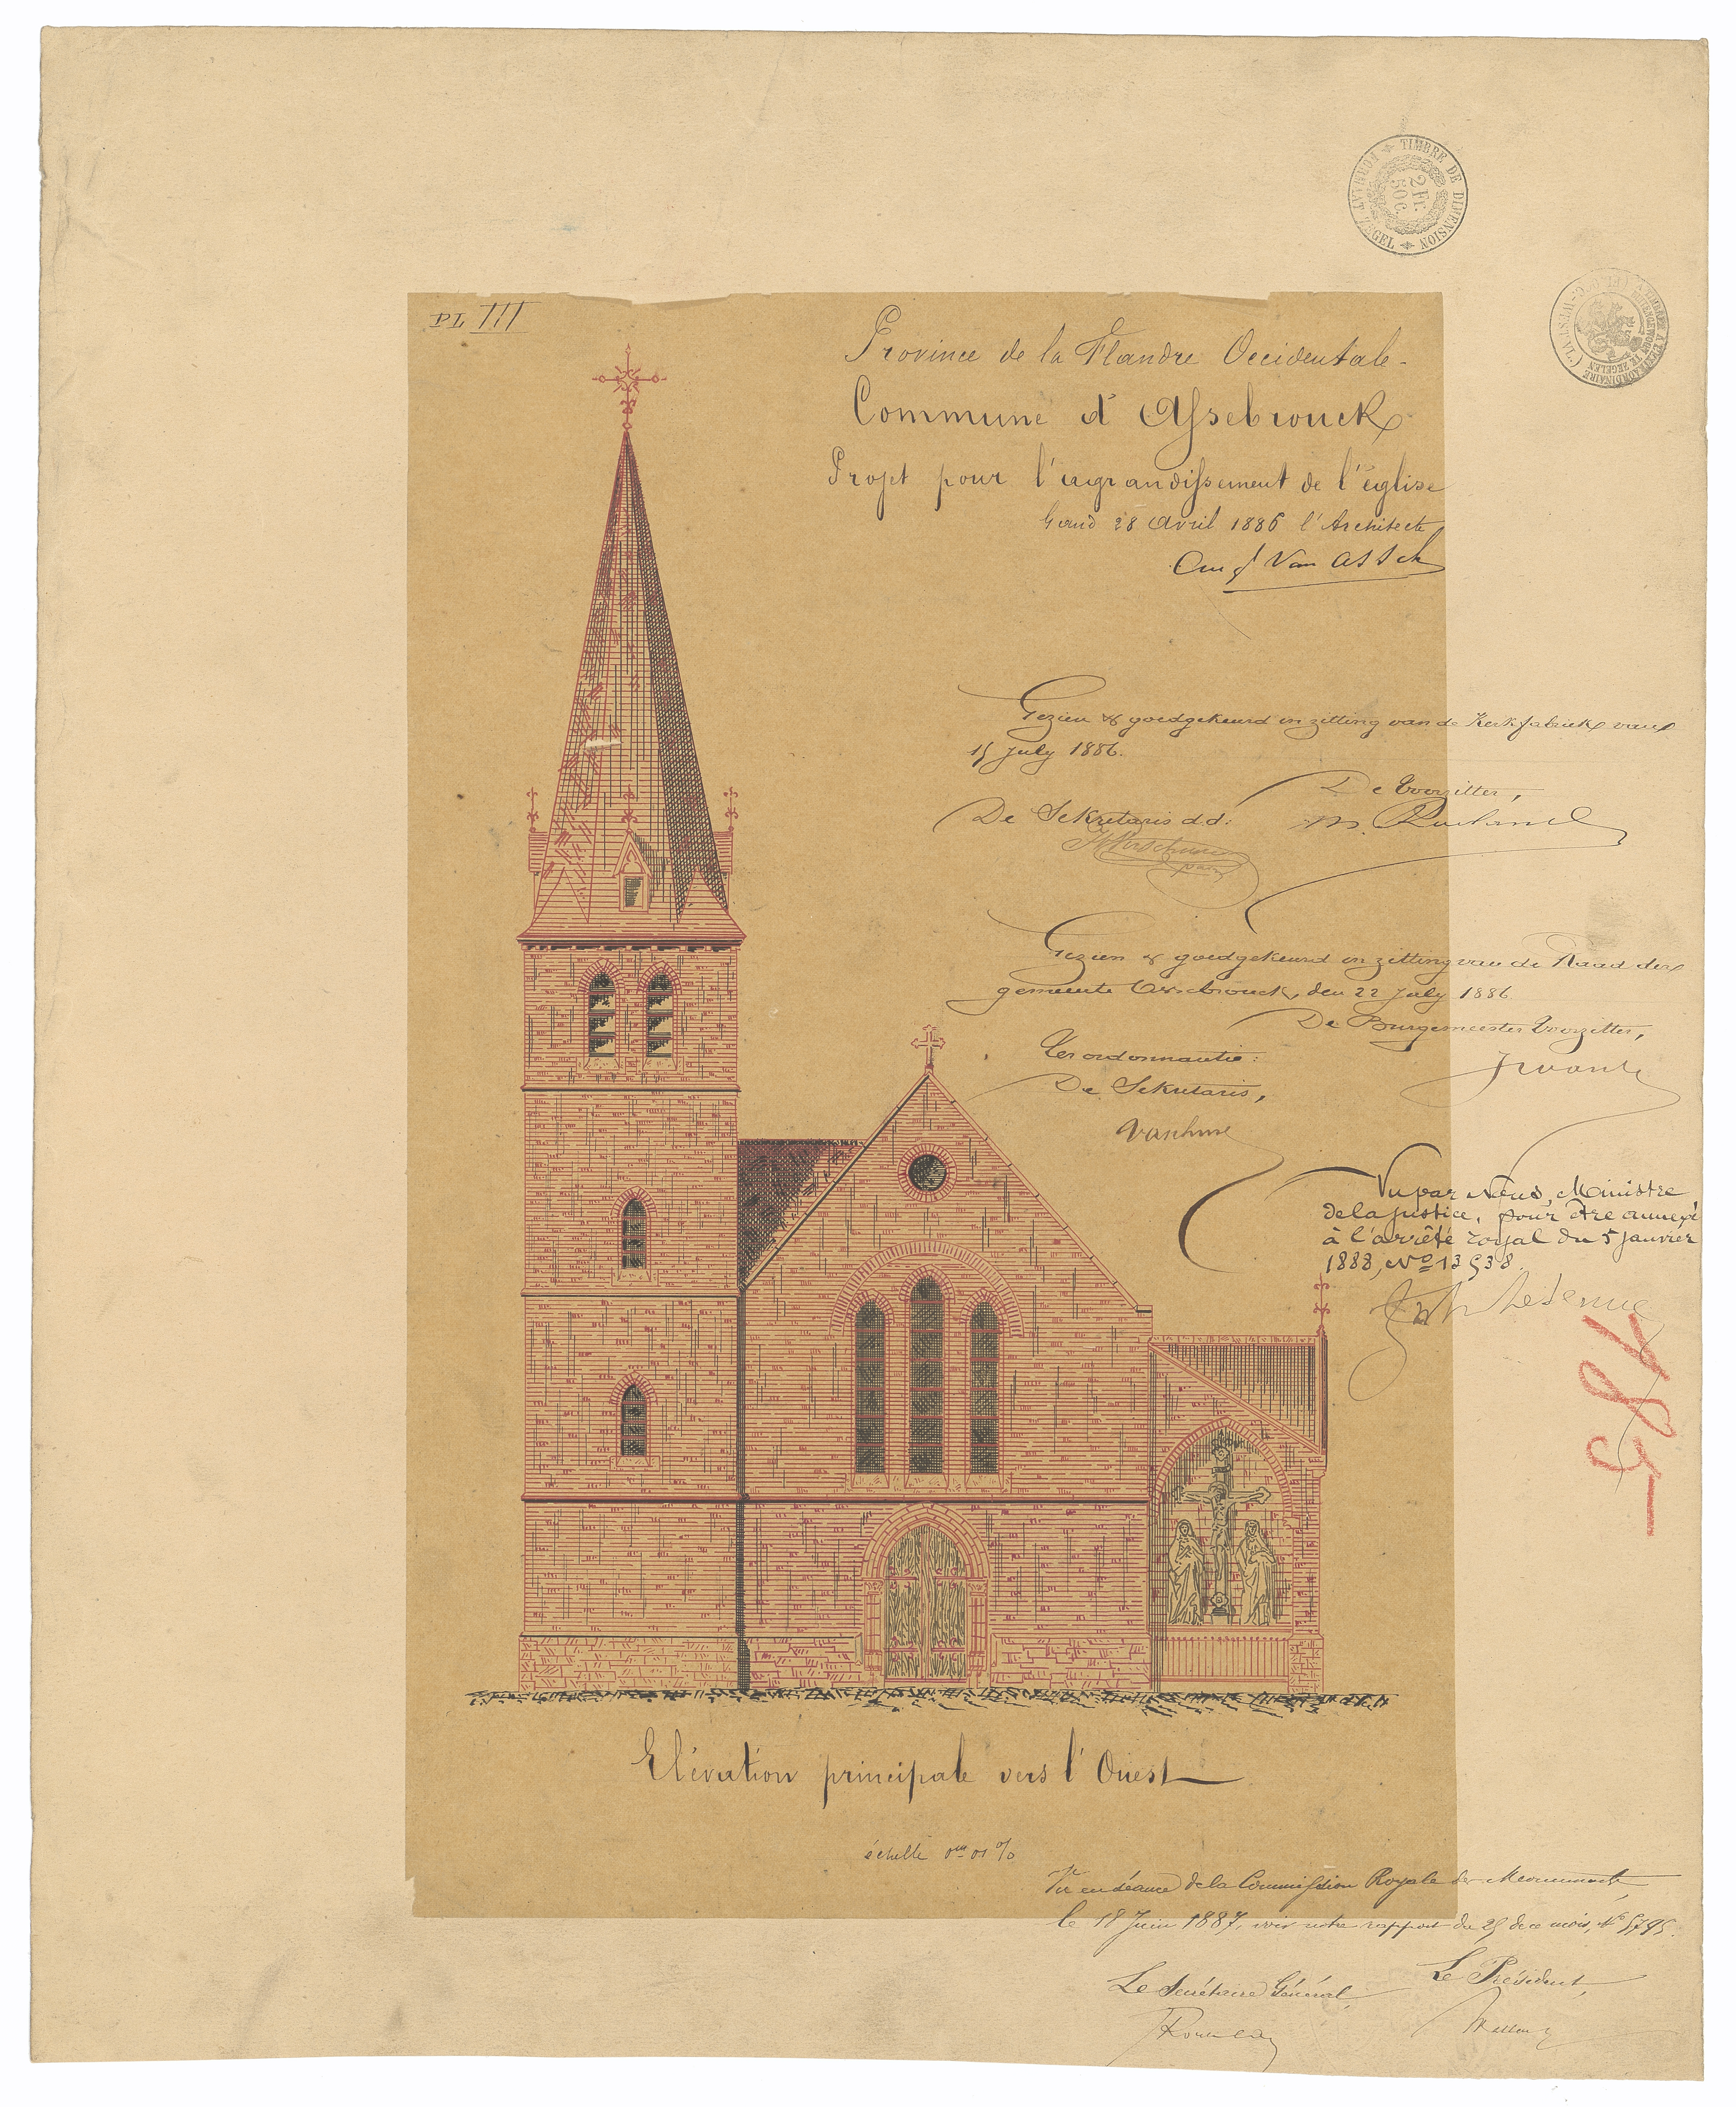 PL III
Province de la Flandre Occidentale-
Commune d'Assebrouck
Projet pour l'agrandissement de l'église
Gand 28 Avril 1886 l'Architecte
Aug Van Assche
TIMBRE DE DIMENSION
FORMAAT ZEGEL
2 Fr.
50 C.
TIMBRE A L'EXTRAORDINAIRE
BUITENGEWOON TE ZEGELEN
Gezien & goedgekeurd in zitting van de Kerkfabriek van
15 July 1886.
De Voorzitter,
De Sekretaris dd:
Gezien & goedgekeurd in zitting van de Raad der
gemeente Assebrouck, den 22 July 1886
De Burgemeester Voorzitter,
Ter ordonnantie:
De Sekretaris,
Vu par Nous, Ministre
de la justice, pour être annexé
à l'arrêté royal du 5 janvier
1888, No 13538.
485
Elévation principale vers l'Ouest
échelle 0m 01 %
Vu en séance de la Commission Royale des Monuments,
le 18 Juin 1887, voir notre rapport du 25 de ce mois, No 5795.
Le Secrétaire Général,
Le Président,